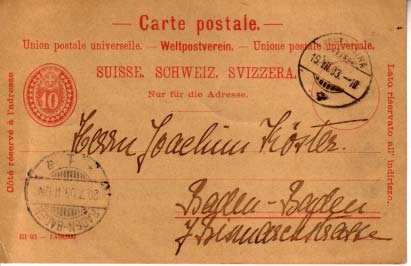 — Carte postale. —
Union postale universelle. — Weltpostverein. — Unione postale universale.
SUISSE. SCHWEIZ. SVIZZERA.
Nur für die Adresse.
10
Côté réservé à l'adresse
Lato riservato all' indirizzo.
Herrn Joachim Köster.
Baden-Baden
7 Bismarckstrasse
BADEN-BADEN
III 03 —